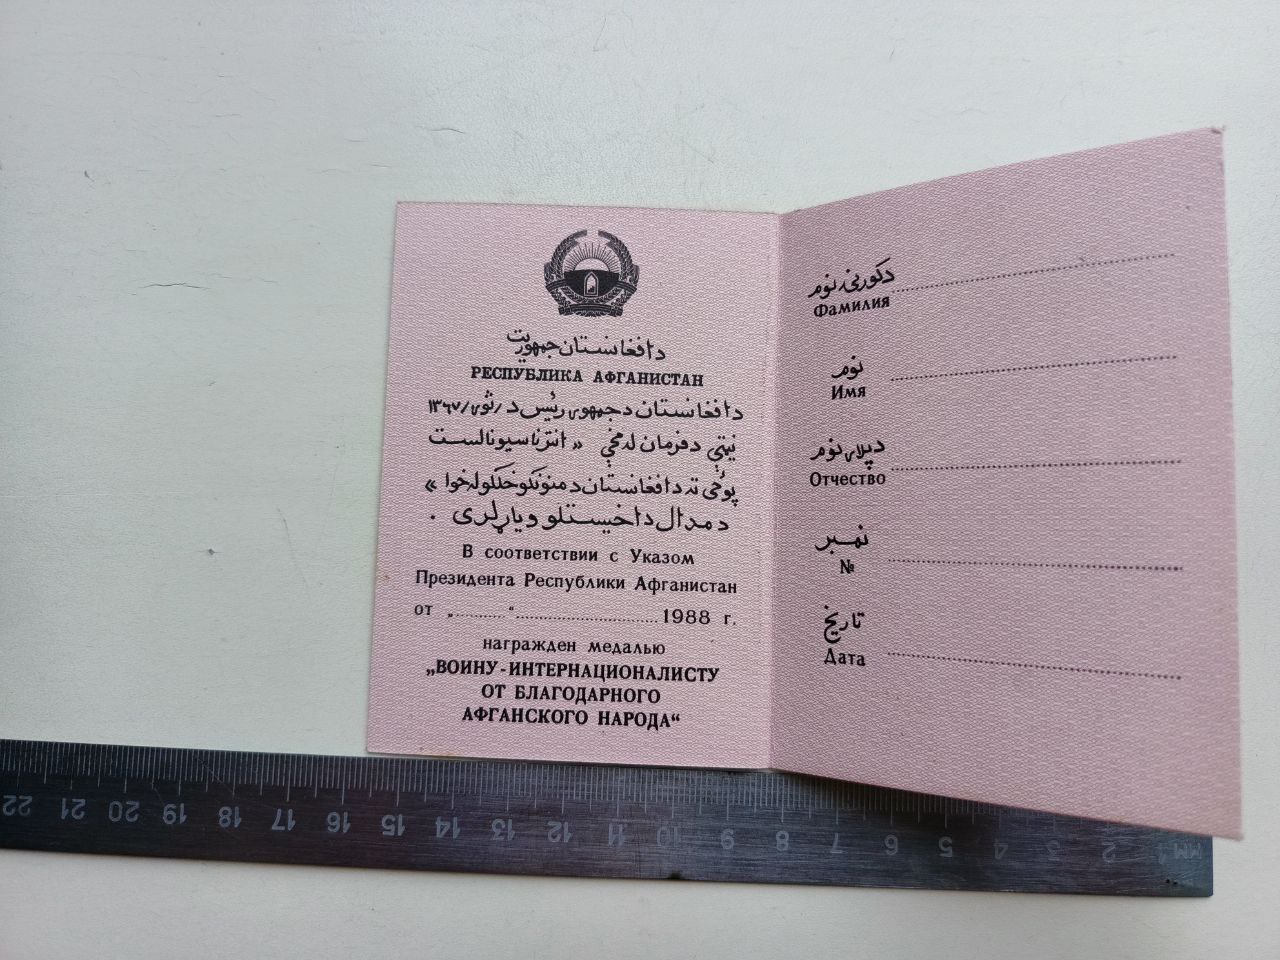 دافغانستان جمهوریت
РЕСПУБЛИКА АФГАНИСТАН
دافغانستان دجمهوری رئیس د /ثور/ ۱۳۶۷
نیټې دفرمان له مخې « انترناسیونالست
پوځی ته دافغانستان دمنونکو خلکو له خوا »
دمدال داخیستلو ویاړ لری .
В соответствии с Указом
Президента Республики Афганистан
от „..........“.............................. 1988 г.
награжден медалью
„ВОИНУ-ИНТЕРНАЦИОНАЛИСТУ
ОТ БЛАГОДАРНОГО
АФГАНСКОГО НАРОДА“
دکورنی نوم
Фамилия
نوم
Имя
دپلار نوم
Отчество
نمبر
№
تاریخ
Дата
22 21 20 19 18 17 16 15 14 13 12 11 10 9 8 7 6 5 4 3 2 1 мм